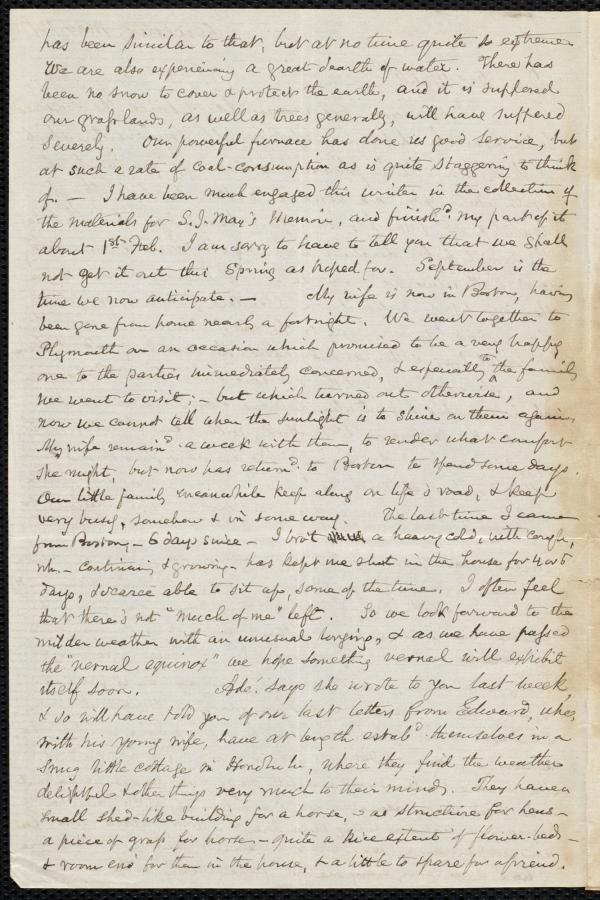 has been similar to that, but at no time quite so extreme
We are also experiencing a great dearth of water. There has
been no snow to cover & protect the earth, and it is supposed
our grass-lands, as well as trees generally, will have suffered
severely. Our powerful furnace has done us good service, but
at such a rate of coal-consumption as is quite staggering to think
of. — I have been much engaged this winter in the collection of
the materials for S. J. May's Memoir, and finish'd my part of it
about 1st Feb. I am sorry to have to tell you that we shall
not get it out this Spring as hoped for. September is the
time we now anticipate. — My wife is now in Boston, having
been gone from home nearly a fortnight. We went together to
Plymouth on an occasion which promised to be a very happy
one to the parties immediately concerned, & especially to the family
we went to visit; – but which turned out otherwise, and
now we cannot tell when the sunlight is to shine on them again.
My wife remain'd a week with them, to render what comfort
she might, but now has return'd to Boston to spend some days.
Our little family meanwhile keep along on life's road, & keep
very busy, somehow & in some way. The last time I came
from Boston, – 6 days since – I bro't a heavy cold, with cough,
wh. – continuing & growing – has kept me shut in the house for 4 or 5
days, & scarce able to sit up, some of the time. I often feel
that there's not "much of me" left. So we look forward to the
milder weather with an unusual longing, & as we have passed
the "vernal equinox" we hope something vernal will exhibit
itself soon. Ade. says she wrote to you last week,
& so will have told you of our last letters from Edward, who,
with his young wife, have at length estab'd themselves in a
snug little cottage in Honolulu, where they find the weather
delightful & other things very much to their minds. They have a
small shed-like building for a horse, – a structure for hens –
a piece of grass for horse – quite a nice extent of flower-beds –
& room eno' for them in the house, & a little to spare for a friend.